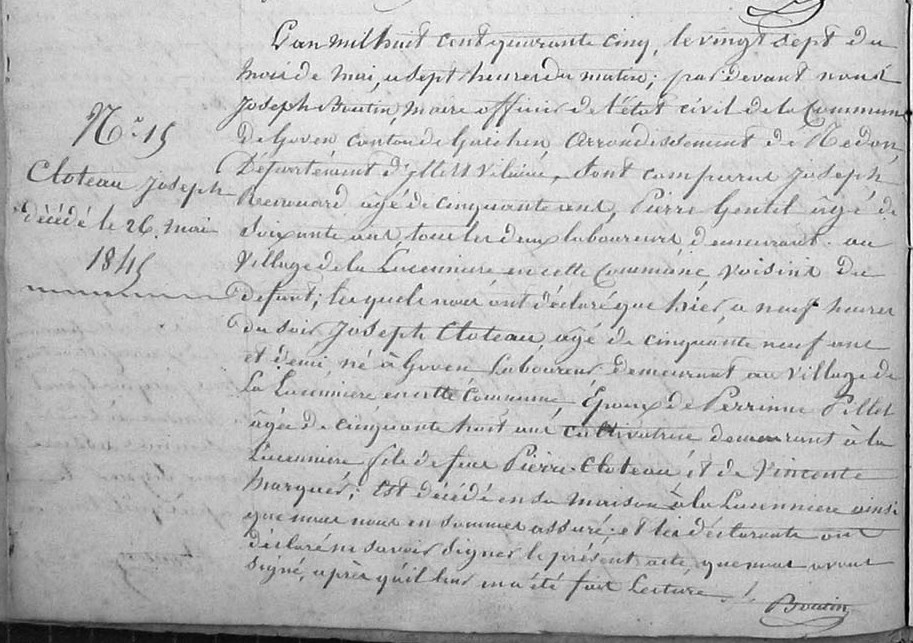 N.° 15
Cloteau Joseph
décédé le 26 mai
1845
L'an mil huit cent quarante cinq, le vingt sept du
mois de mai, a sept heures du matin; par devant nous
Joseph Boutin, maire officier de l'état civil de la Commune
de Goven canton de Guichen arrondissement de Redon,
Département d'ille et Vilaine, sont comparus Joseph
âgé de cinquante ans, Pierre Gentil âgé de
Soixante ans tous les deux laboureurs demeurant au
Village de la Lucenniere en cette Commune voisins du
defunt; lesquels nous ont déclaré que hier, a neuf heures
du soir, Joseph Cloteau, agé de cinquante neuf ans
et demi, né à Goven Laboureur demeurant au village de
La Lucenniere en cette Commune, Époux de Perrinne Pillet
âgée de cinquante huit ans cultivatrice demeurant à la
Lucenniere fils de feu Pierre Cloteau et de Vincente
Marquer; Est décédé en sa maison à la Lucenniere ainsi
que nous nous en sommes assuré, et les déclarants ont
déclaré ne savoir signer le présent acte, que nous avons
signé, après qu'il leur en a été fait Lecture ./.
Boutin